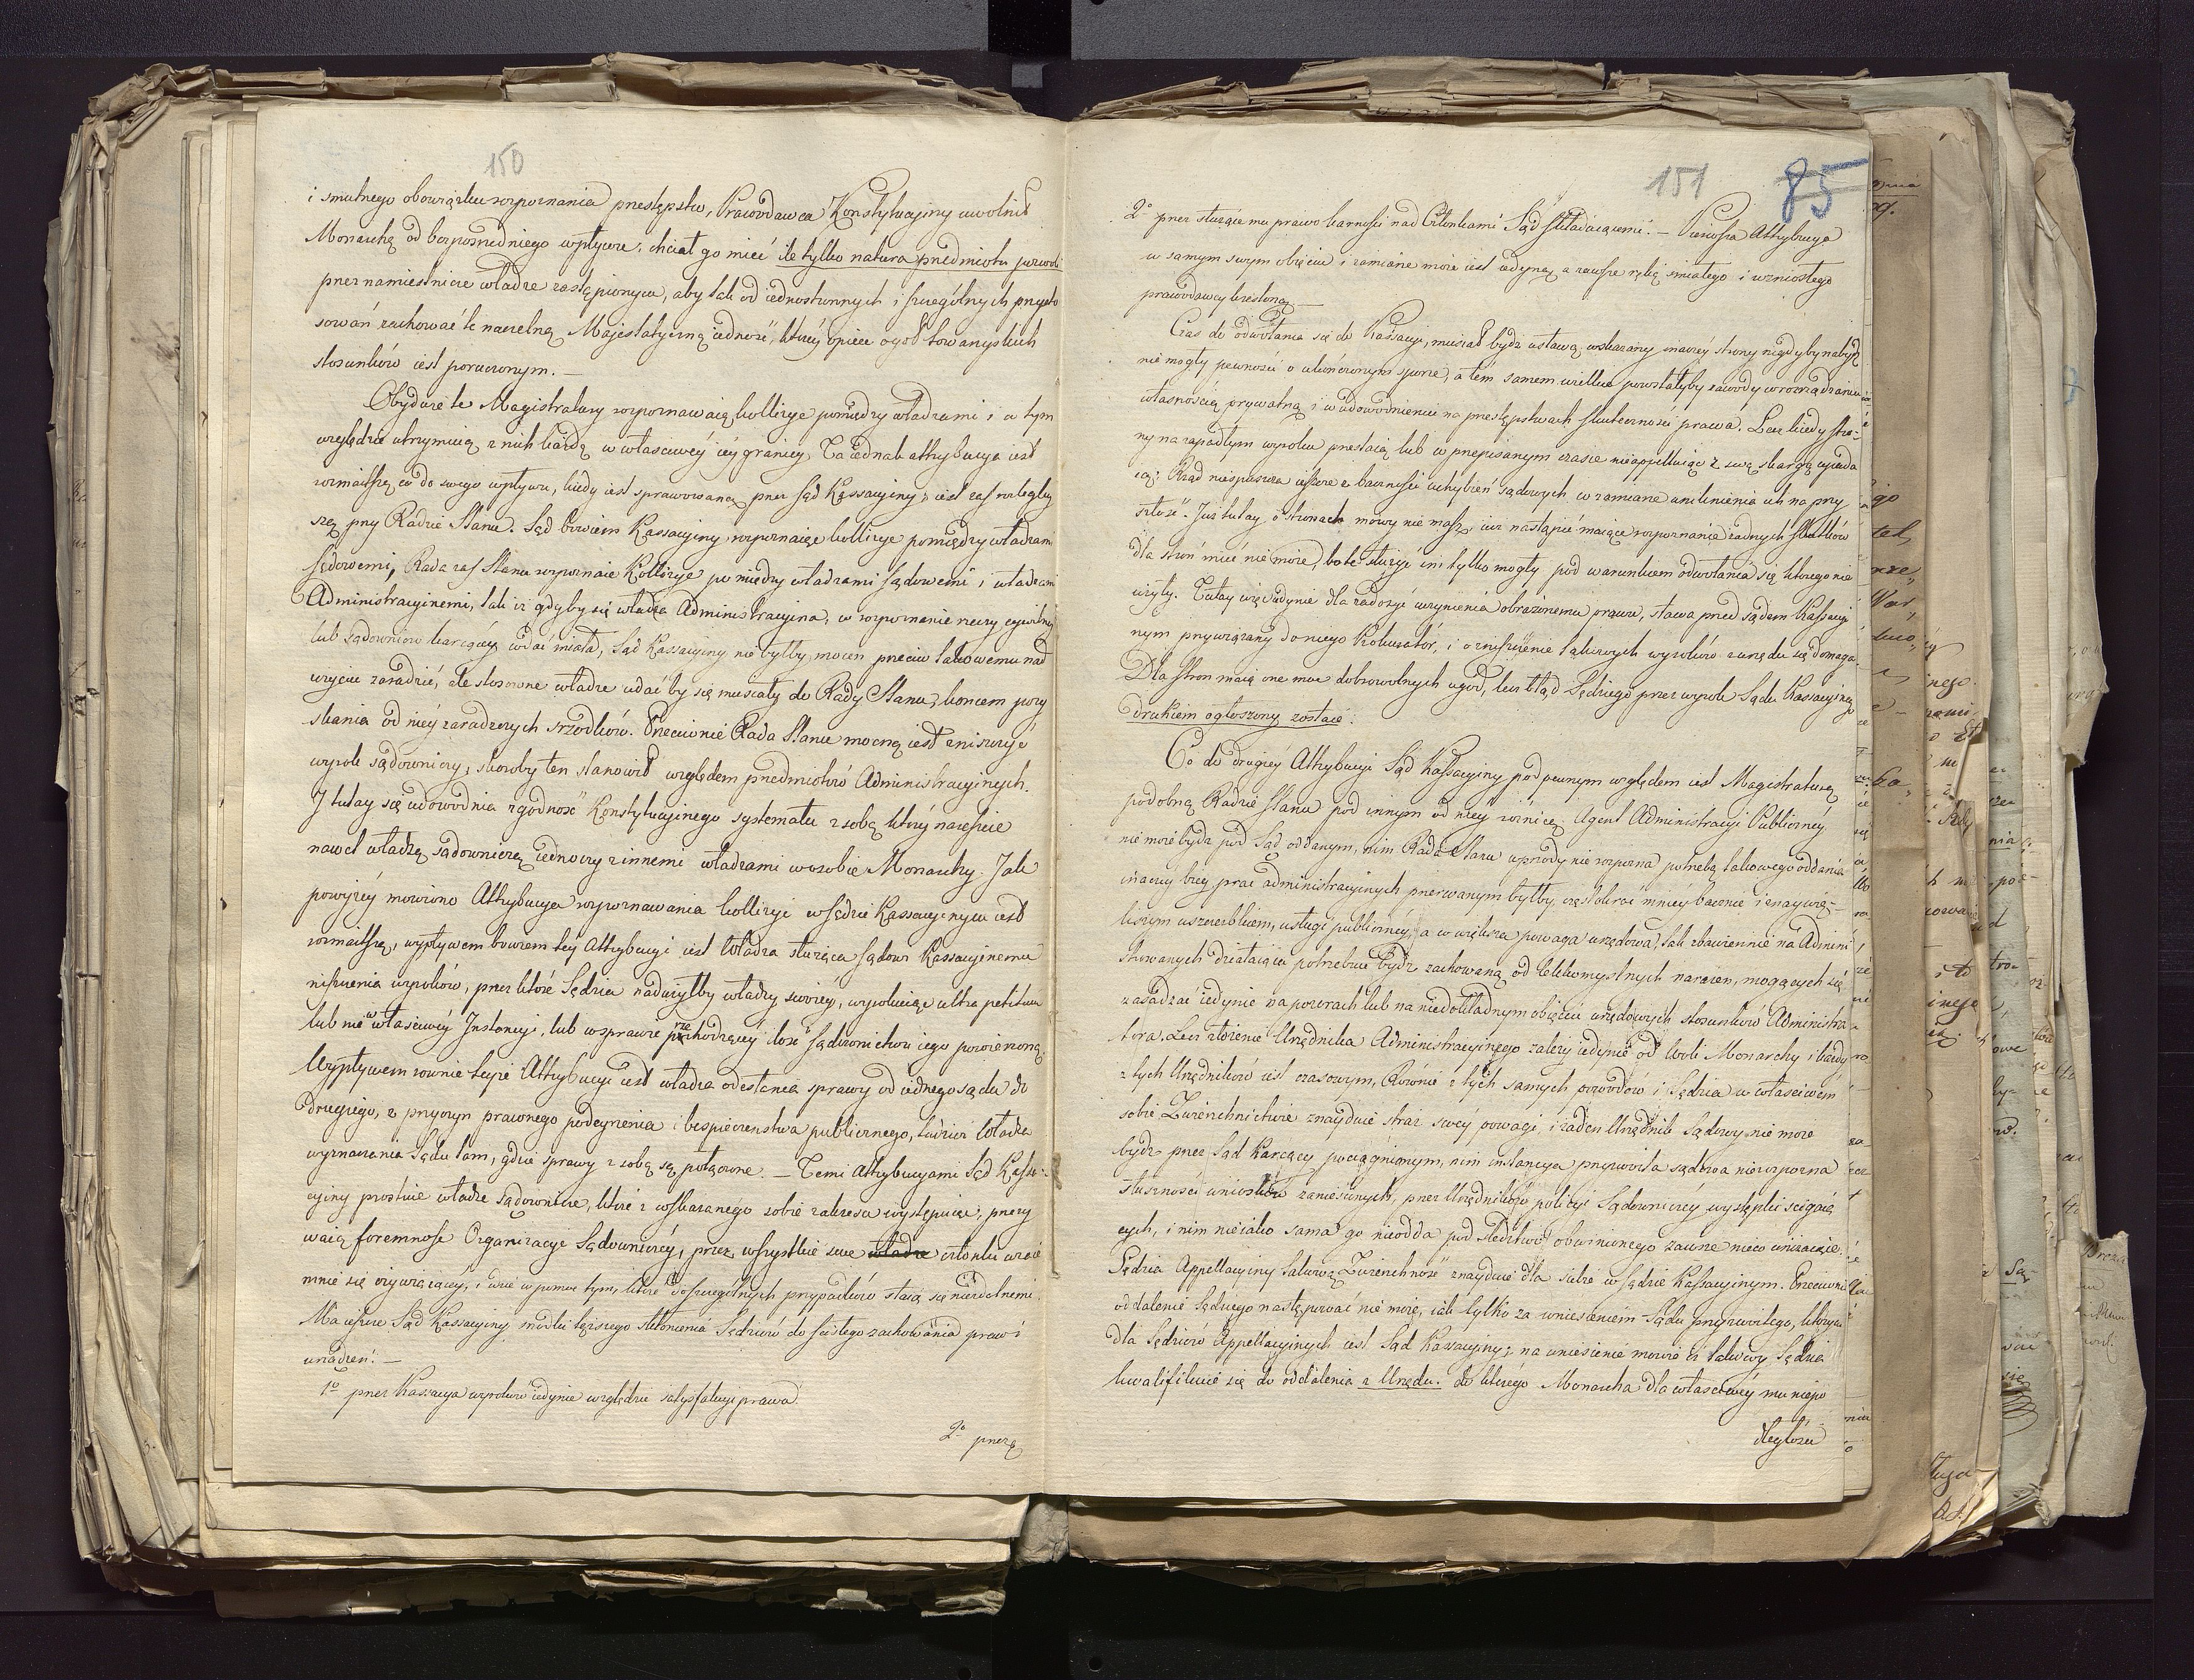 150
i smutnego obowiązku rozpoznania przestępstw, Prawodawca Konstytucyjny uwolnił
Monarchę od bezpośredniego wpływu, chciał go mieć ile tylko natura przedmiotu pozwoli
przez namiestnicze władze zastąpionym, aby tak od jednostronnych i szczególnych przysto
sowań zachować te naczelną Majestatyczną iedność, któréy opiece ogół towarzyskich
stosunków iest poruczonym. —
Obydwie te Magistratury rozpoznawaią kollizye pomiędzy władzami i w tym
względzie utrzymuią z nich każdą w właściwéy iéy granicy, Ta iednak attrybucya iest
rozmaitszą co do swego wpływu, kiedy iest sprawowaną przez Sąd Kassacyiny, iest zaś rozlegley
szą przy Radzie Stanu. Sąd bowiem Kassacyiny rozpoznaie kollizye pomiędzy władzami
Sądowemi, Rada zaś Stanu rozpoznaie Kollizye pomiędzy władzami Sądowemi i władzami
Administracyinemi, tak iż gdyby się władza Administracyina, w rozpoznanie rzeczy cywilnéy
lub sądownictwo karzącéy wdać miała, Sąd Kassacyiny nie byłby mocen przeciw takowemu nad
użyciu zaradzić, ale stosowne władze udać by się musiały do Rady Stanu, końcem pozy
skania od niéy zaradzczych srzodków. Przeciwnie Rada Stanu mocną iest zniszczyć
wyrok sądowniczy, skoroby ten stanowił względem przedmiotów Administracyinych.
I tutay się udowodnia zgodność Konstytucyinego systematu z sobą który nareszcie
nawet władzę sądowniczą iednoczy z innemi władzami w osobie Monarchy. Jak
powyżéy mówiono Attrybucya rozpoznawania kollizyi w Sądzie Kassacyinym iest
rozmaitszą, wypływem bowiem téy Attrybucyi iest Władza służąca Sądowi Kassacyinemu
niszczenia wyroków, przez które Sędzia nadużyłby władzy swoiéy, wyrokuiąc ultra petitum
lub nie w właściwéy Instancyi, lub w sprawie przechodzącéy ilość Sądownictwu iego powierzoną
Wypływem równie teyże Attrybucyi iest władza odesłania sprawy od iednego sądu do
drugiego, z przyczyn prawnego podeyrzenia i bespieczenstwa publicznego, tudzież Władza
wyznaczania Sądu tam, gdzie sprawy z sobą są połączone. — Temi Attrybucyami Sąd Kassa-
cyiny prostuie władze sądownicze, które z wskazanego sobie zakresu występuiąc, przery
waią foremność Organizacyi Sądowniczéy, przez wszystkie swe władze członki wzaie
mnie się ożywiaiącéy, i daie w pomoc tym, które do szczególnych przypadków staią się niezdolnemi.
Ma ieszcze Sąd Kassacyiny srzodki tęższego skłonienia Sędziów do ścisłego zachowania praw i
urządzeń. —
1o przez Kassacya wyroków iedynie względzie satysfakcyi prawa.
2o przez
151
85
2o przez służące mu prawo karności nad Członkami Sąd składaiącemi. — Pierwsza Attrybucya
w samym swym obięciu i zamiane może iest iedyną a zawsze ręką śmiałego i wzniosłego
prawodawcy kreśloną —
Czas do odwołania się do Kassacyi, musiał bydź ustawą wskazany inaczéy strony nigdyby nabydź
nie mogły pewności o ukończonym sporze, a tém samem wielkie powstałyby zawody w rozrządzaniu
własnością prywatną i w udowodnieniu na przestępstwach skuteczności prawa. Lecz kiedy stro-
ny na zapadłym wyroku przestaią lub w przepisanym czasie nieappelluiąc z swą skargą wyieda
ią; Rząd niespuszcza ieszcze z baczności uchybień sądowych w zamiane uniknienia ich na przy
szłość. Już tutay o stronach mowy nie masz, iuż nastąpić maiące rozpoznanie żadnych skutków
dla stron mieć nie może, bo te służyć im tylko mogły pod warunkiem odwołania się którego nie
użyły. Tutay więc iedynie dla zadosyć uczynienia obrażonemu prawu, stawa przed sądem Kassacyi
nym przywiązany do niego Prokurator, i o zniszczenie takowych wyroków z urzędu się domaga.
Dla stron maią one moc dobrowolnych ugod, lecz błąd Sędziego przez wyrok Sądu Kassacyinego
drukiem ogłoszony zostaie.
Co do drugiéy Attrybucyi Sąd Kassacyiny pod pewnym względem iest Magistraturą
podobną Radzie Stanu pod innym od niéy różnicą. Agent Administracyi Publicznéy
nie może bydź pod Sąd oddanym, nim Rada Stanu wprzódy nie rozpozna potrzebą takowego oddania
inaczéy bieg prac administracyinych przerwanym byłby częstokroć mniéy bacznie i z naywię-
kszym uszczerbkiem usługi publicznéy, a wreszcie powaga urzędowa, tak zbawiennie na Admini
strowanych działaiąca potrzebuie bydź zachowaną od lekkomyślnych narażeń, mogących się
zasadzać iedynie na pozorach lub na niedokładnym obięciu urzędowych stosunków Administra
tora. Lecz złożenie Urzędnika Administracyinego zależy iedynie od Woli Monarchy i każdy
z tych Urzędników iest czasowym, Równie z tych samych powodów i Sędzia w właściwém
sobie Zwierzchnictwie znayduie straż swéy powagi, i żaden Urzędnik Sądowy nie może
bydź przez Sąd Karzący pociągnionym, nim instancya przyzwoita sądowa nierozpozna
słuszności wniosków zaniesionych, przez Urzędników policyi Sądowniczéy występki ścigaią
cych, i nim nieiako sama go nieodda pod śledztwo obwinionego zawsze nieco uniżaiące.
Sędzia Appellacyiny takową Zwierzchność znayduie dla siebie w Sądzie Kassacyinym. Przeciwnie
oddalenie Sędziego następować nie może, iak tylko za wniesieniem Sądu przyzwoitego, którym
dla Sędziów Appellacyinych iest Sąd Kassacyiny; na wniesienie mówię iż takowy Sędzia
kwalifikuie się do oddalenia z Urzędu. do którego Monarcha dla właściwéy mu niepo
dległości